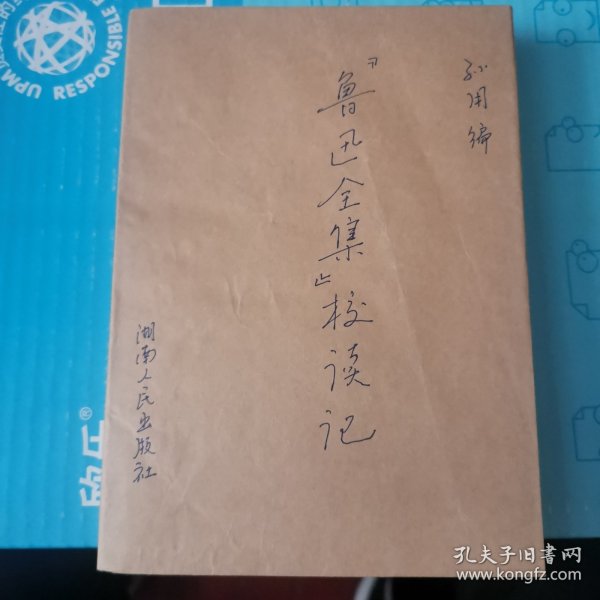 孙用编
『鲁迅全集』校读记
湖南人民出版社
UPM
RESPONSIBLE
欣乐®
孔夫子旧书网
www.kongfz.com